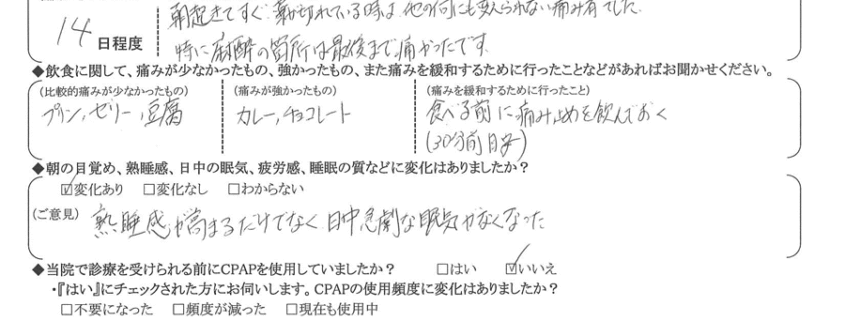 朝起きてすぐ薬が切れている時は、他の何にも変えられない痛み有でした。
14 日程度
特に麻酔の箇所は最後まで痛かったです
◆飲食に関して、痛みが少なかったもの、強かったもの、また痛みを緩和するために行ったことなどがあればお聞かせください。
(比較的痛みが少なかったもの) (痛みが強かったもの) (痛みを緩和するために行ったこと)
プリン,ゼリー,豆腐 カレー,チョコレート 食べる前に痛み止めを飲んでおく
(30分前目安)
◆朝の目覚め、熟睡感、日中の眠気、疲労感、睡眠の質などに変化はありましたか？
☑変化あり □変化なし □わからない
(ご意見) 熟睡感が高まるだけでなく、日中急劇な眠気がなくなった
◆当院で診療を受けられる前にCPAPを使用していましたか？ □はい ☑いいえ
・『はい』にチェックされた方にお伺いします。CPAPの使用頻度に変化はありましたか？
□不要になった □頻度が減った □現在も使用中